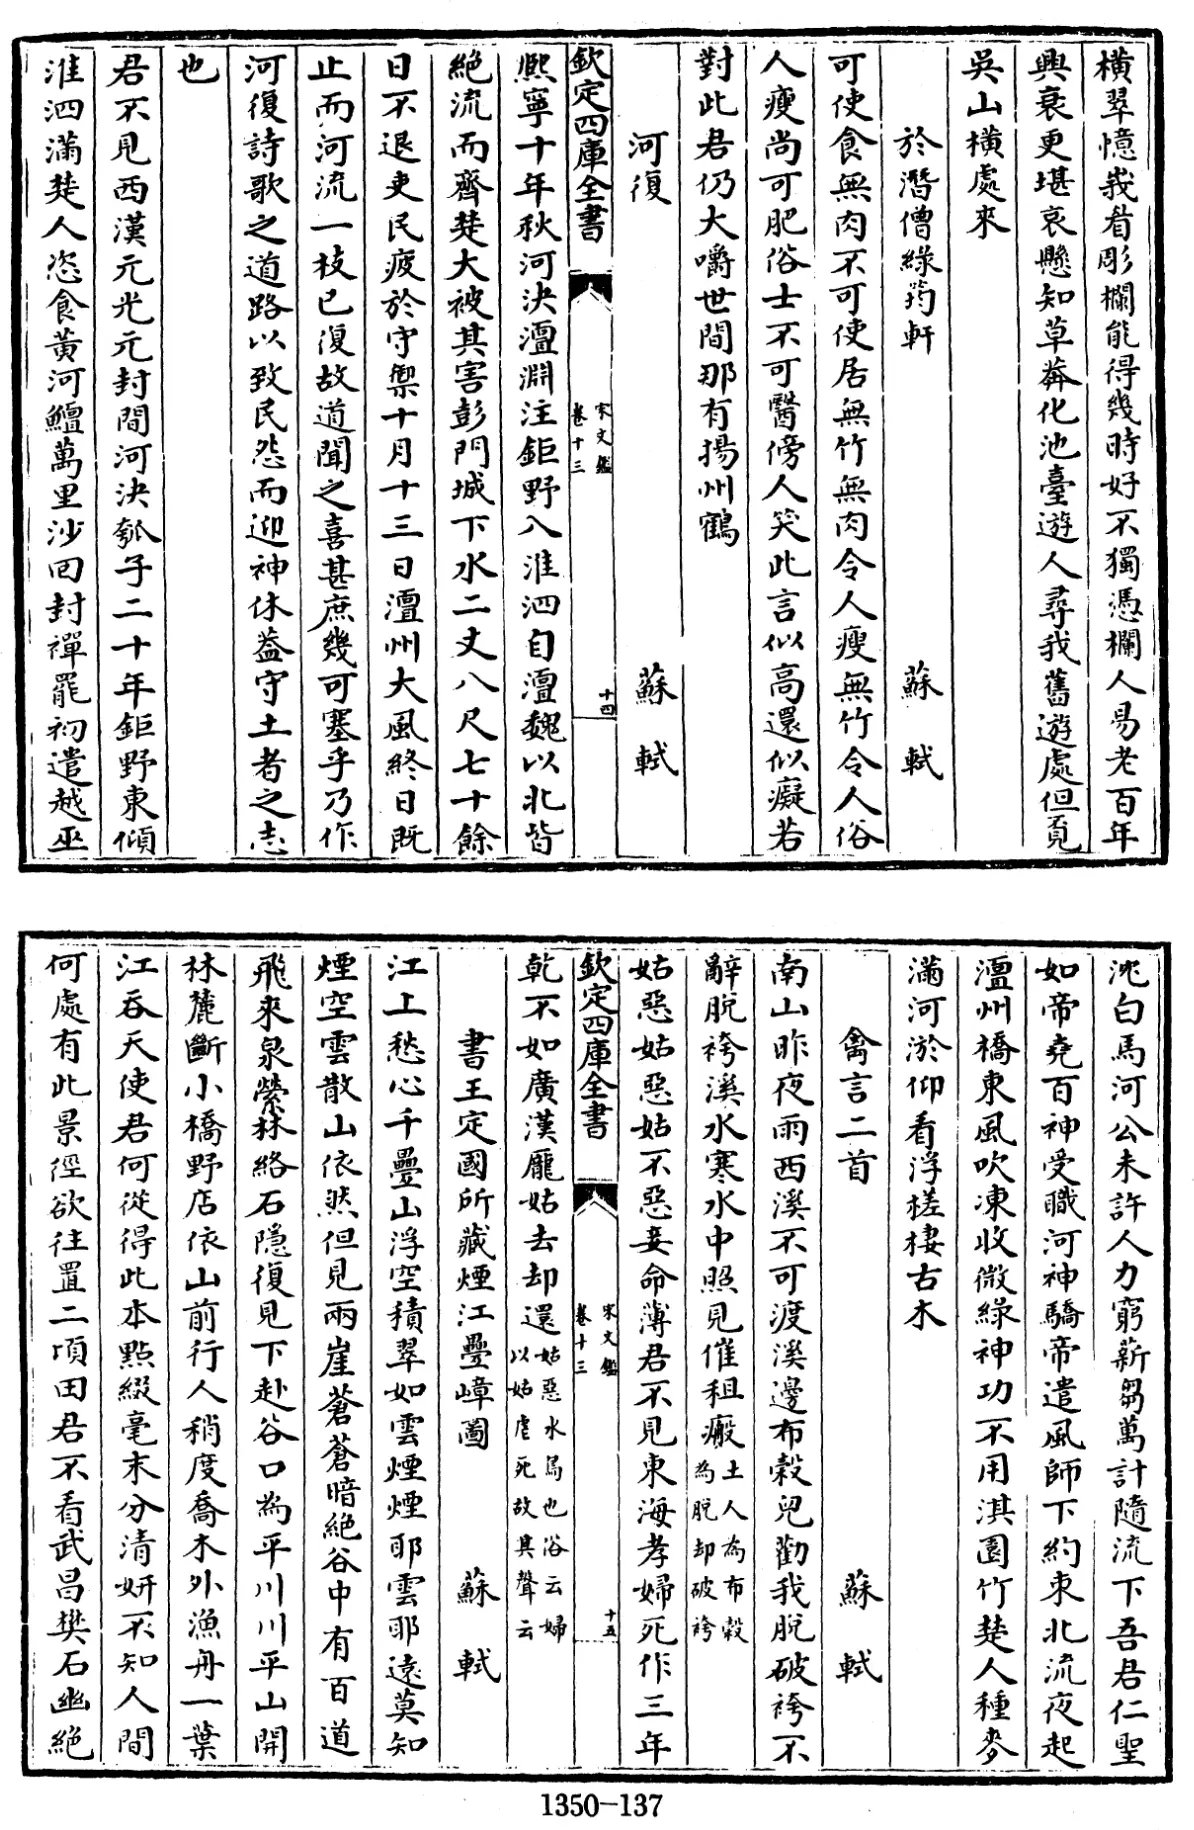 橫翠憶峩看彫欄能得幾時好不獨憑欄人易老百年
興衰更堪哀懸知草莽化池臺遊人尋我舊遊處但覓
吳山橫處來
於潛僧綠筠軒 蘇軾
可使食無肉不可使居無竹無肉令人瘦無竹令人俗
人瘦尚可肥俗士不可醫傍人笑此言似高還似癡若
對此君仍大嚼世間那有揚州鶴
河復 蘇軾
欽定四庫全書 宋文鑑 卷十三 十四
熙寧十年秋河決澶淵注鉅野入淮泗自澶魏以北皆
絶流而齊楚大被其害彭門城下水二丈八尺七十餘
日不退吏民疲於守禦十月十三日澶州大風終日既
止而河流一枝已復故道聞之喜甚庶幾可塞乎乃作
河復詩歌之道路以致民怨而迎神休葢守土者之志
也
君不見西漢元光元封間河決瓠子二十年鉅野東傾
淮泗滿楚人恣食黃河鱣萬里沙囘封禪罷初遣越巫
沈白馬河公未許人力窮薪芻萬計隨流下吾君仁聖
如帝堯百神受職河神驕帝遣風師下約束北流夜起
澶州橋東風吹凍收微綠神功不用淇園竹楚人種麥
滿河淤仰看浮槎棲古木
禽言二首 蘇軾
南山昨夜雨西溪不可渡溪邊布穀兒勸我脫破袴不
辭脫袴溪水寒水中照見催租瘢土人為布穀為脫却破袴
姑惡姑惡姑不惡妾命薄君不見東海孝婦死作三年
欽定四庫全書 宋文鑑 卷十三 十五
乾不如廣漢龐姑去却還姑惡水鳥也俗云婦以姑虐死故其聲云
書王定國所藏煙江疊嶂圖 蘇軾
江上愁心千疊山浮空積翠如雲煙煙耶雲耶遠莫知
煙空雲散山依然但見兩崖蒼蒼暗絶谷中有百道
飛來泉縈林絡石隱復見下赴谷口為平川川平山開
林麓斷小橋野店依山前行人稍度喬木外漁舟一葉
江吞天使君何從得此本點綴毫末分清妍不知人間
何處有此景徑欲往置二頃田君不看武昌樊石幽絶
1350-137